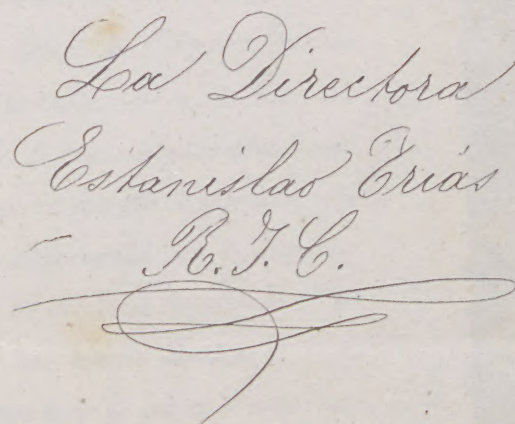 La Directora
Estanislao Erias
R. J. C.